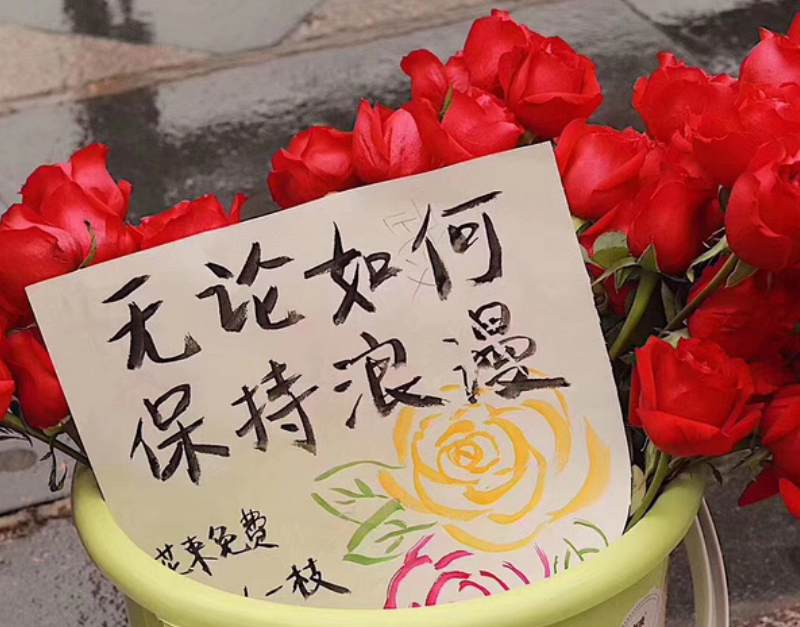 无论如何
保持浪漫
花束免费
一枝